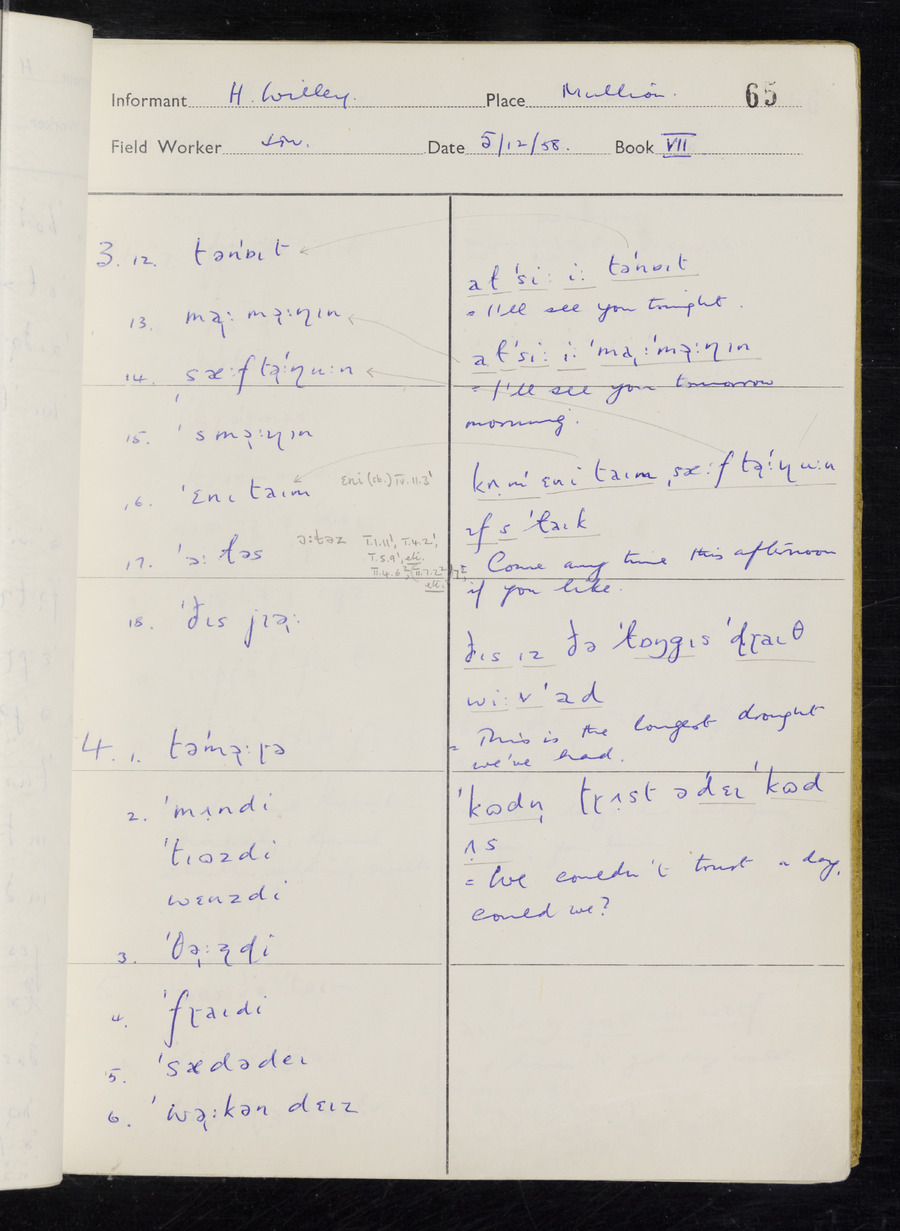 Informant H. Willey. Place Mullion. 65
Field Worker Date 5/12/58. Book VII
3. 12. təˈnɒɪt
13. mɔ̨ː mɔ̨ːɳɪn
14. ˌsæːf tə̨ˈːɳuːn
15. ˈsmɔ̨ːɳɪn
16. ˈɛnɪ taɪm ɛni (sb.) IV.11.3¹
17. ˈəː təs əːtəz I.1.11¹, I.4.2¹,
I.5.9¹, etc.
etc.
18. ˈðɪs jɪə̨ː
4. 1. təˈmə̨ːɽə
2. ˈmʌndi
ˈtɪʊzdi
wɛnzdi
3. ˈθə̨ːʐɖi
4. ˈfɽaɪdi
5. ˈsædədeɪ
6. ˈwə̨ːkən dɛɪz
at ˈsiː iː təˈnɒɪt
= I'll see you tonight.
at ˈsiː iː ˈmɔ̨ːˈmɔ̨ːɳɪn
= I'll see you tomorrow
morning.
kʌm ˈɛni taɪm ˌsæːf tə̨ˈːɳuːn
ɪf s ˈtaɪk
= Come any time this afternoon
if you like.
ðɪs ɪz ðə ˈlɒŋgɪs ˈɖɽaɪθ
wiːv ˈad
= This is the longest drought
we've had.
ˈkʊdn̩ tɽʌst əˈdɛɪ ˈkʊd
ʌs
= We couldn't trust a day,
could we?